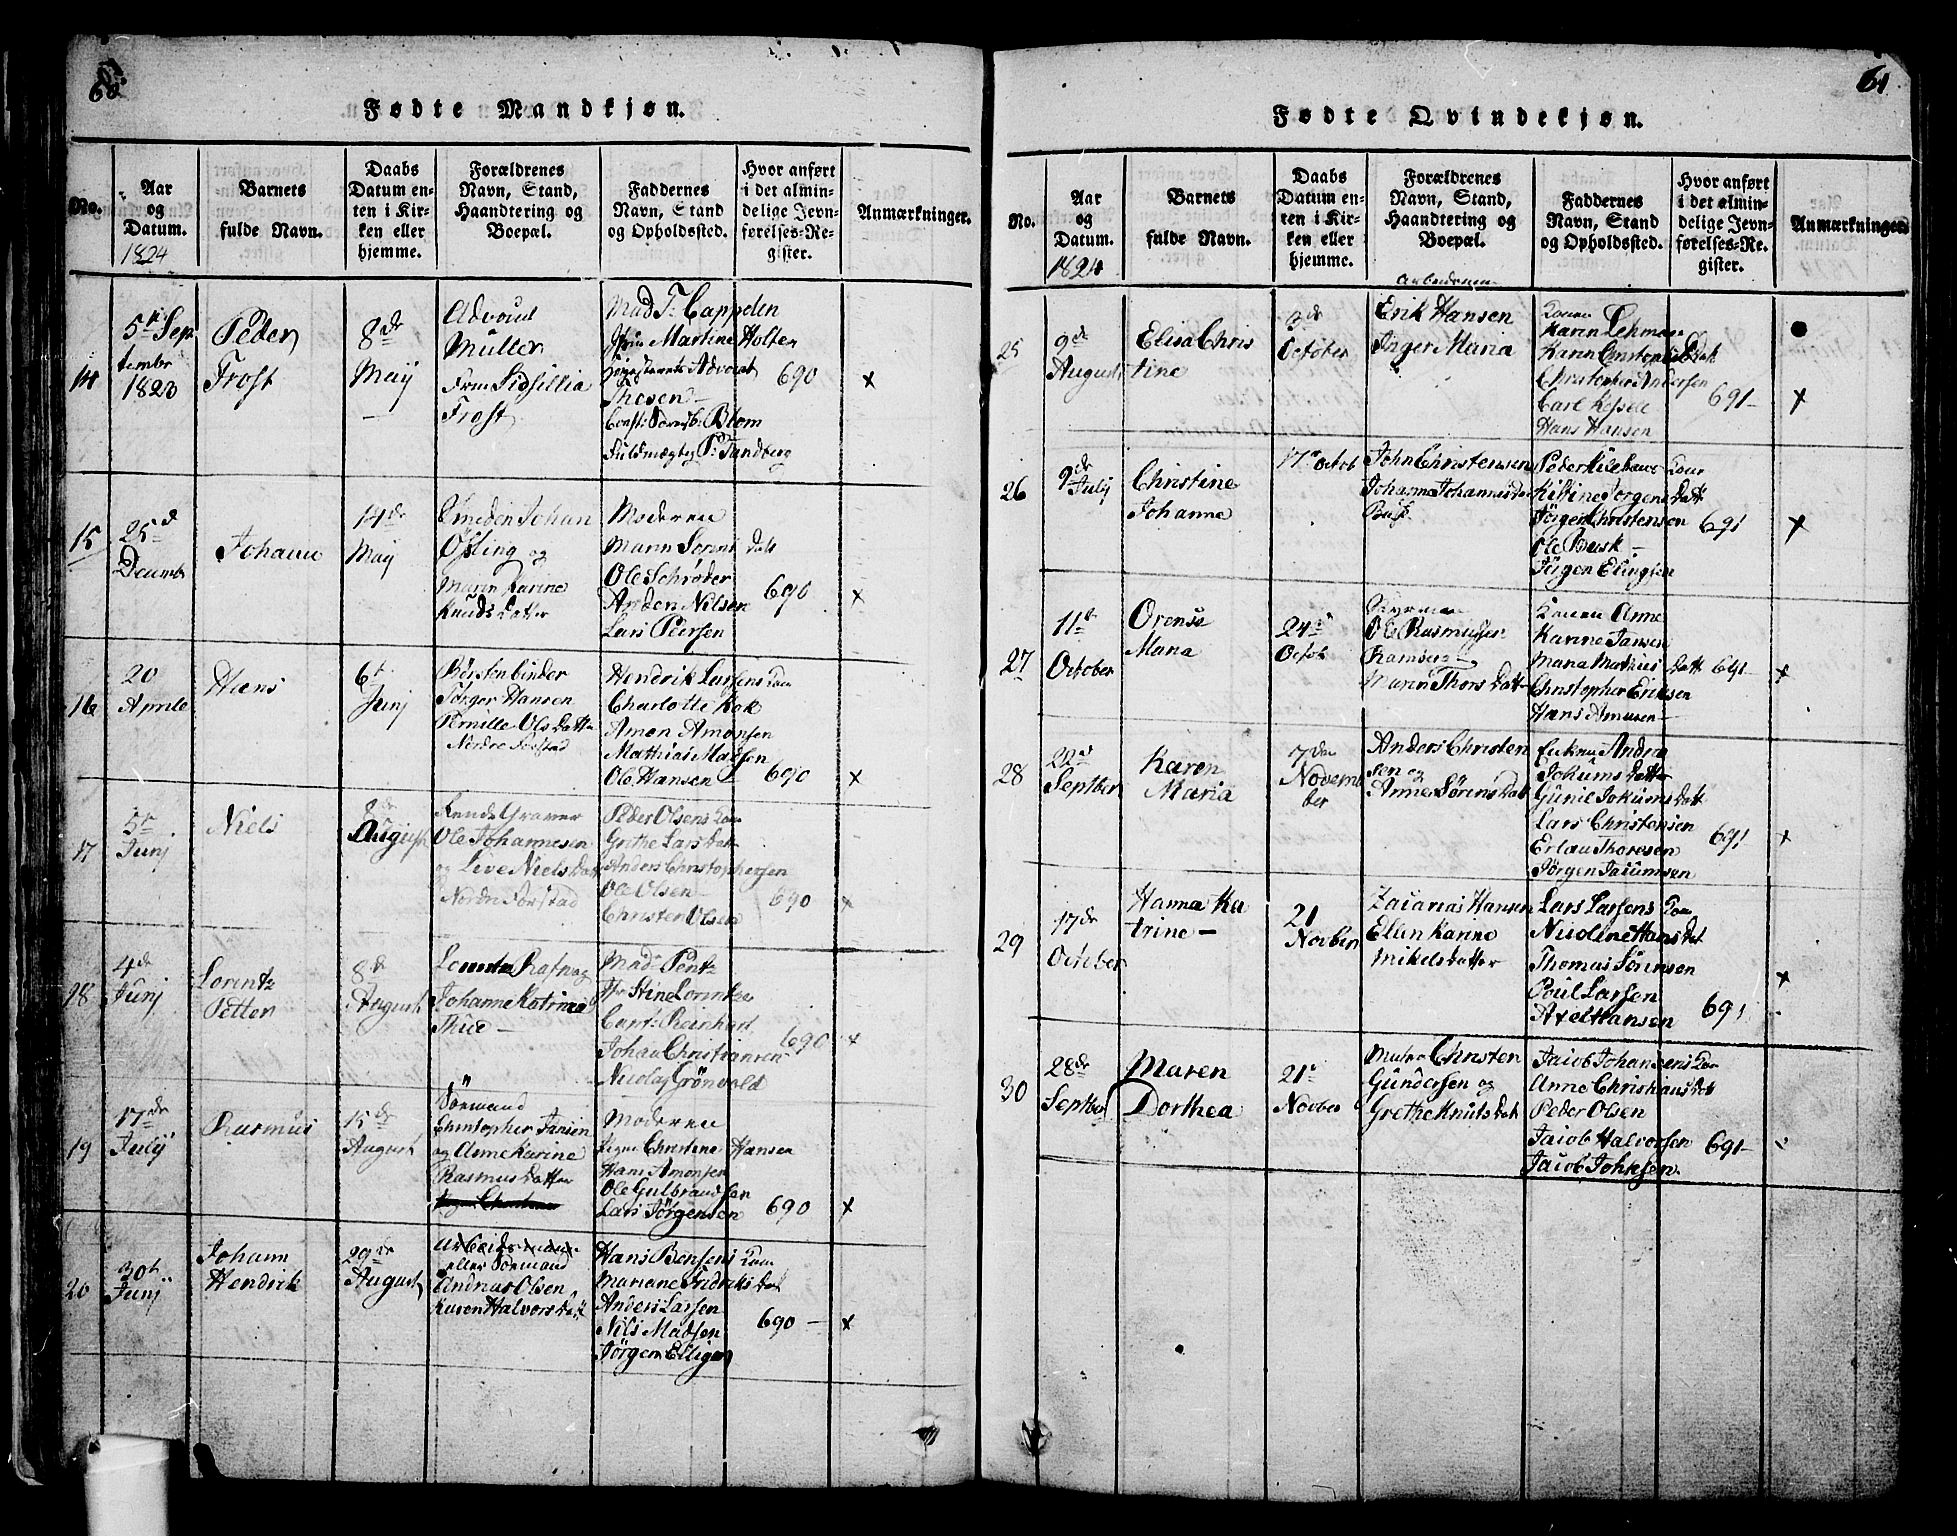 60
Fødte Mandkjøn.
No.
Aar
og
Datum.
1824
Barnets
fulde Navn.
Daabs
Datum en-
ten i Kir-
ken eller
hjemme.
Forældrenes
Navn, Stand,
Haandtering og
Boepæl.
Faddernes
Navn, Stand
og Opholdssted.
Hvor anført
i det almin-
delige Jevn-
førelses-Re-
gister.
Anmærkninger.
14
5te Sep
tembr
1823
Peder
Frost
8de
Maij
Advocat
Müller
Frue Sidsillia
Frost
Mad T: Cappelen
Martine Holter
Advocat
Thesen
Blom
Fuldmægtig P: Tandberg
690
x
15
25d
Decembr
Johan
14de
Maij
Smeden Johan
Ofling og
Maren Karine
Knuds Datter
Moderen
Marin Sørens Datt
Ole Schrøder
Anders Nilsen
Lars Peersen
690
x
16
20
Aprile
Hans
6t
Junj
Børstenbinder
Jørger Hansen
Pernille Ols Datter
Nordre Forstad
Hendrik Larsens Kone
Charlotte Kok
Amon Amonsen
Mathias Madsen
Ole Hansen
690
x
17
5te
Junj
Niels
8de
August
Graver
Ole Johannesen
og Live Niels Dat
Nordre Forstad
Peder Olsens Kone
Grethe Lars Dat
Anders Christophersen
Ole Olsen
Christen Olsen
690
x
18
4de
Junj
Lorentz
Petter
8de
August
Lorentz Rafn og
Johanne Katrine
Thue
Mad Pentz
Stine Lorentze
Reinhart
Johan Christiansen
Nicolaj Grönvold
690
x
19
17de
Julij
Rasmus
15de
August
Sørmand
Christopher Jansen
og Anne Karine
Rasmus Datter
Moderen
Christine Hansen
Hans Amonsen
Ole Gulbrandsen
Lars Jørgensen
690
x
20
30te
Junj
Johann
Hendrik
29de
August
Arbeidsmand
eller Sørmand
Andreas Olsen
Karen Halvors Datt
Hans Bensens Kone
Mariane Fridriks Dat
Anders Larsen
Nils Madsen
Jørgen Elligen
690
x
61
Fødte Qvindekjøn.
No.
Aar
og
Datum.
1824
Barnets
fulde Navn.
Daabs
Datum en-
ten i Kir-
ken eller
hjemme.
Forældrenes
Navn, Stand,
Haandtering og
Boepæl.
Faddernes
Navn, Stand
og Opholdssted.
Hvor anført
i det almin-
delige Jevn-
førelses-Re-
gister.
Anmærkninger
25
9de
August
Elisa Chris
tine
3de
October
Erik Hansen
Inger Maria
Konen
Karin Lehman
Karin Christophers Dat
Christopher Andersen
Carl
Hans Hansen
691
x
26
9de
Julij
Christine
Johanne
17de Octob
John Christensen
Johanne Johannes Dat
Busk
Peder Kone
Kistine Jørgens Datt
Jørgen Christensen
Ole Brusk
Jørgen Elingsen
691
x
27
11te
October
Orense
Maria
24de
Octob
Styrman
Ole Rasmussen
Ramberg
Marin Thors Datter
Konen Anne
Karine Jansen
Maria Mathias Datt
Christopher Eriksen
Hans Amunsen
691
x
28
22d
Septber
Karen
Maria
7de
Novem
ber
Anders Christen
sen og
Anne Sørens Dat
Enken Andrea
Jokums Datter
Gunil Jokums Datt
Lars Christensen
Erlau Thoresen
Jörgen Jacumsen
691
x
29
17de
October
Hanna Ka
trine
21
Novber
Zacarias Hansen
Ellen Karine
Mikels Datter
Lars Larsens Kone
Nicoline Hans Dat
Thomas Sörensen
Poul Larsen
Axel Hansen
691
x
30
28de
Septber
Maren
Dorthea
21de
Novber
Christen
Gundersen og
Grethe Knuts Dat
Jacob Johansens Kone
Anne Christians Dat
Peder Olsen
Jacob Halvorsen
Jacob Johnsen
691